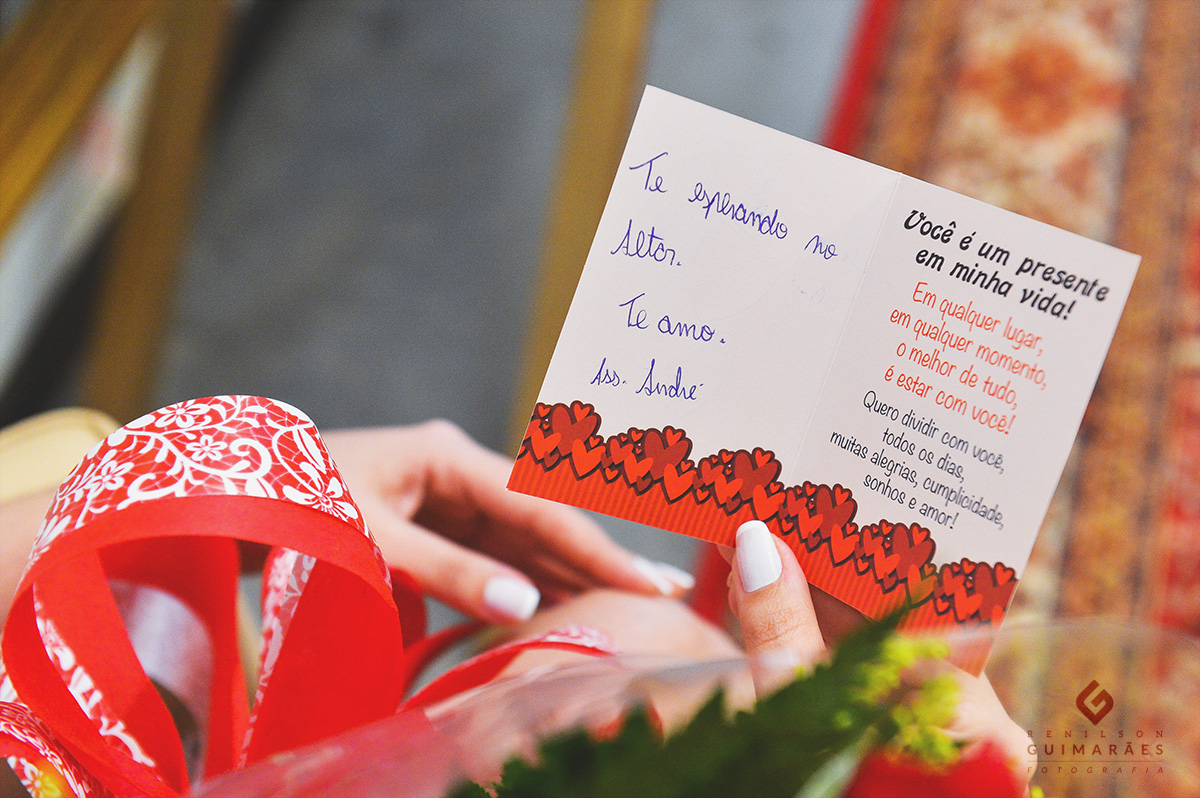 Te esperando no
Altar.
Te amo.
Ass. André
Você é um presente
em minha vida!
Em qualquer lugar,
em qualquer momento,
o melhor de tudo,
é estar com você!
Quero dividir com você,
todos os dias,
muitas alegrias, cumplicidade,
sonhos e amor!
RENILSON
GUIMARÃES
FOTOGRAFIA